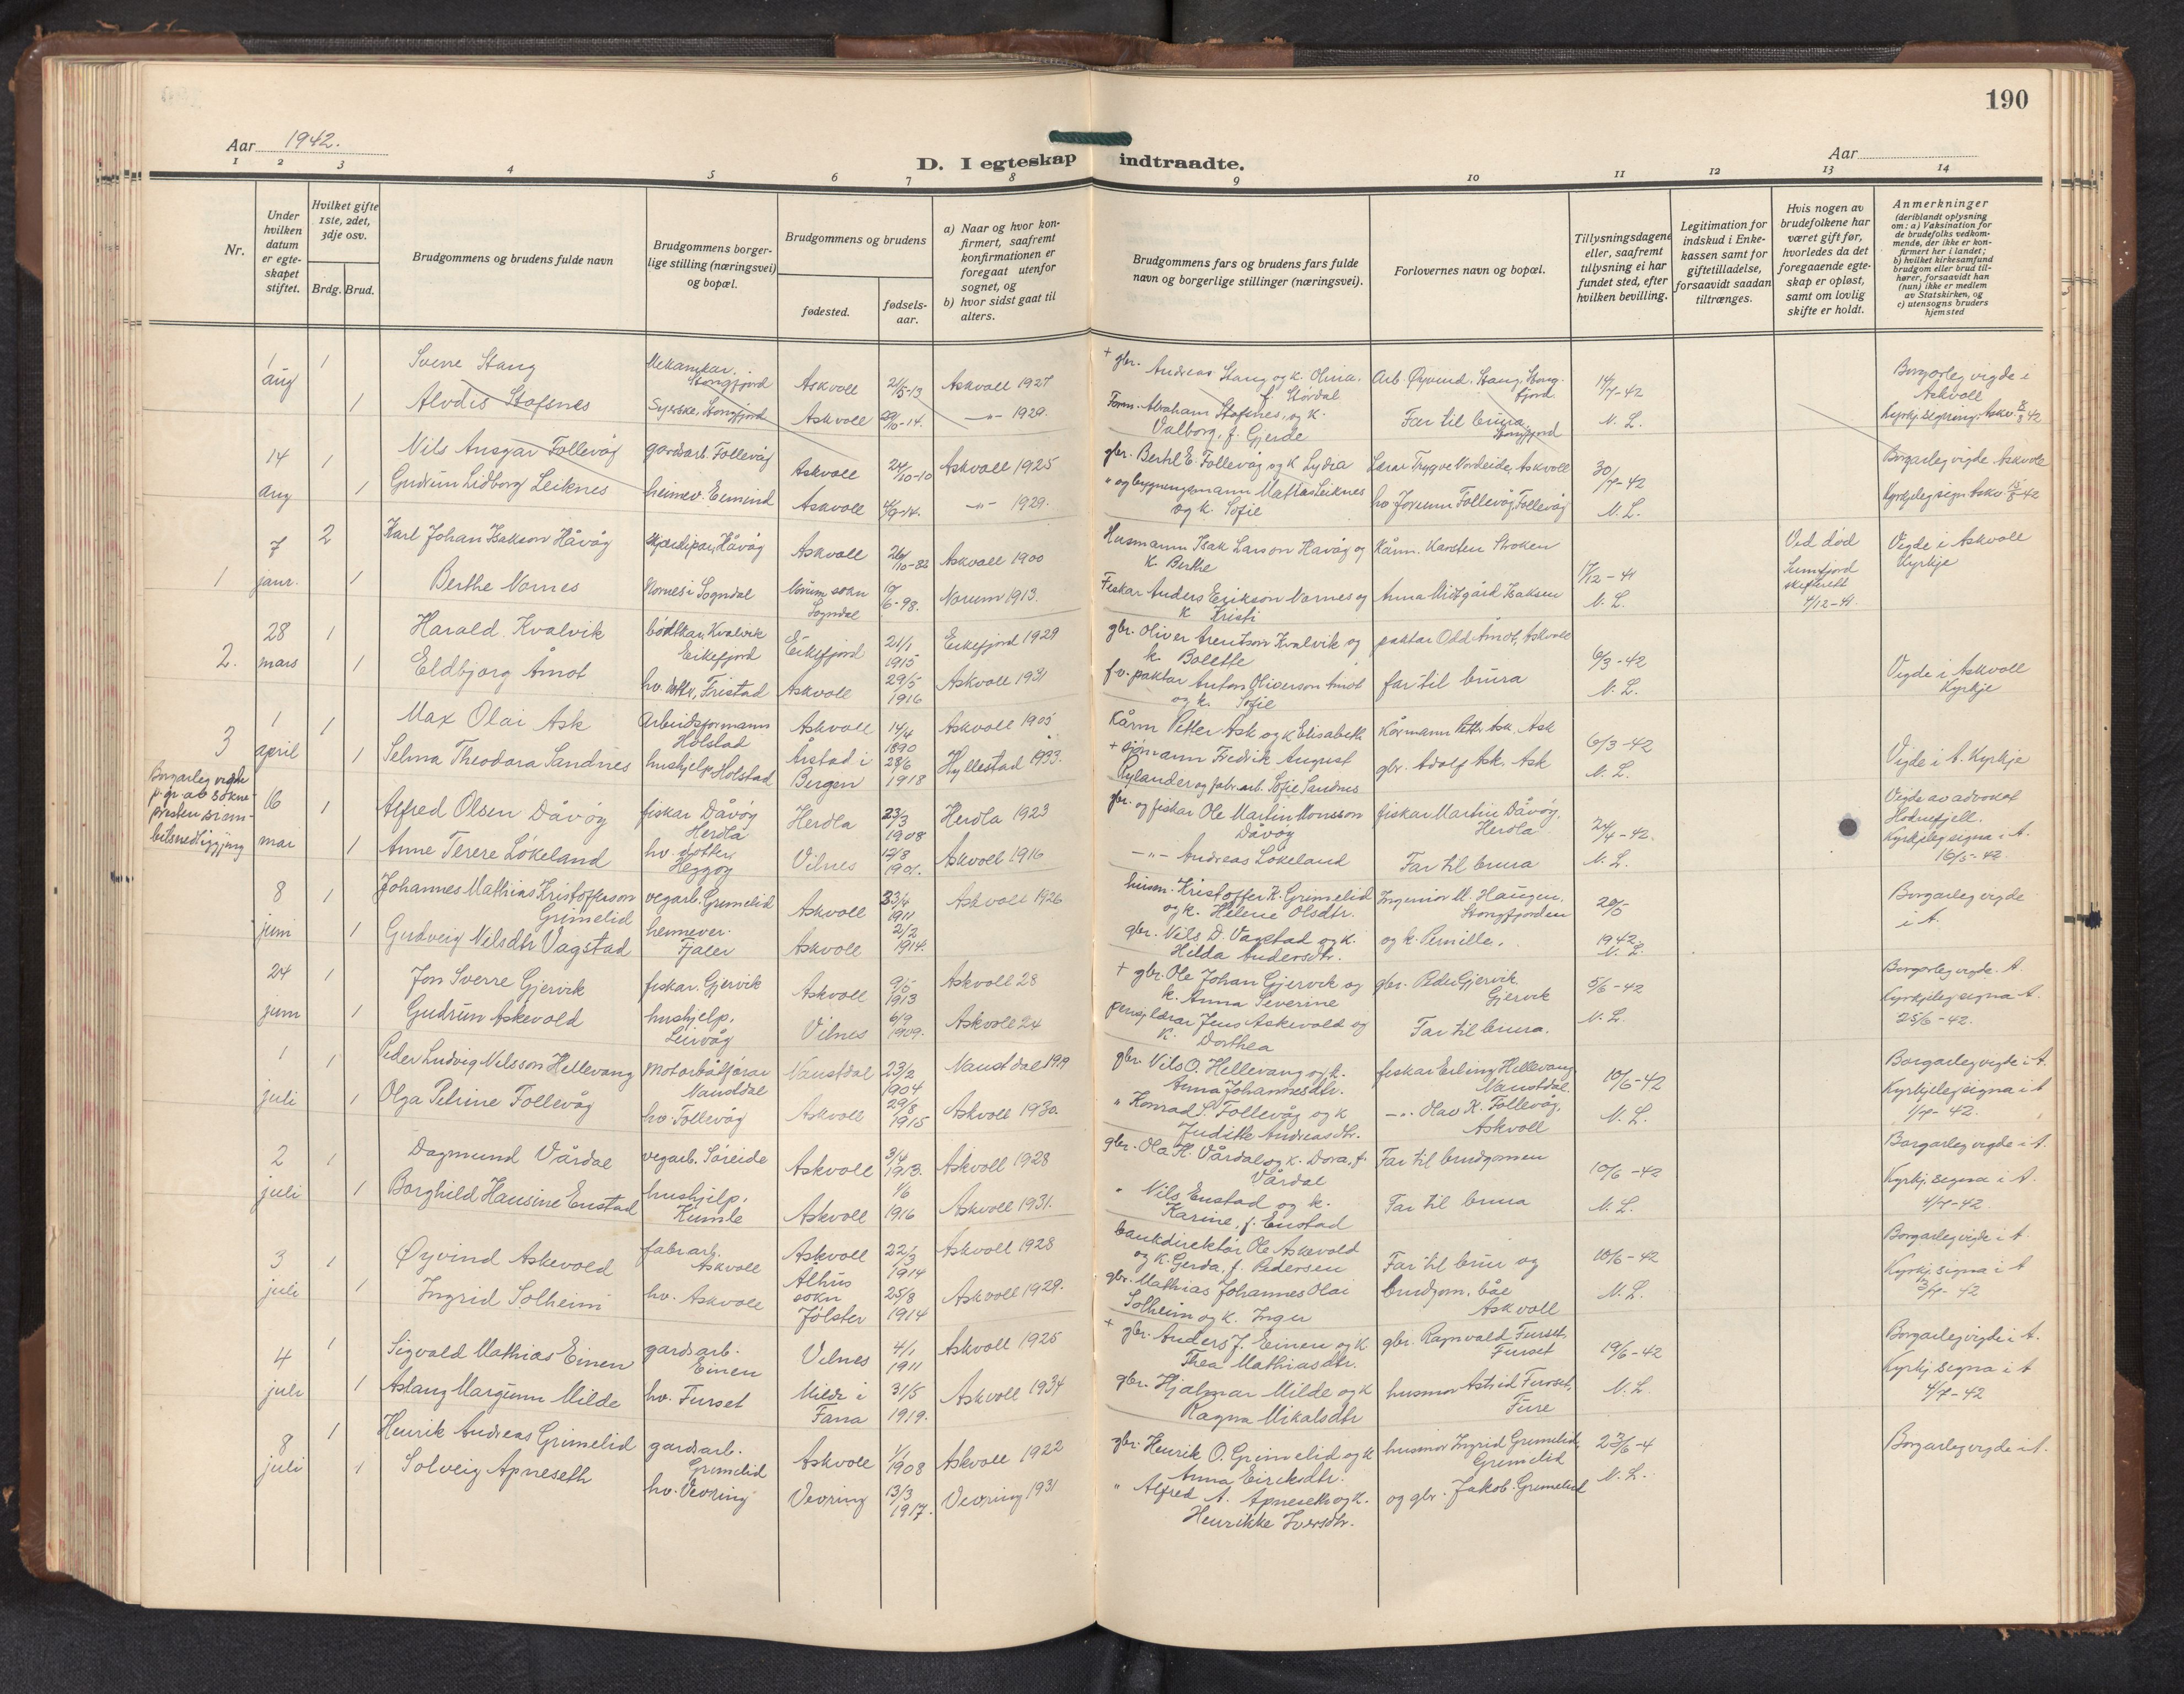 190
Aar 1942.
D. I egteskap indtraadte.
Aar
1 2 3 4 5 6 7 8 9 10 11 12 13 14
Nr.
Under hvilken datum er egte-skapet stiftet.
Hvilket gifte 1ste, 2det, 3dje osv.
Brdg. Brud.
Brudgommens og brudens fulde navn
Brudgommens borger-lige stilling (næringsvei) og bopæl.
Brudgommens og brudens
fødested.
fødsels-aar.
a) Naar og hvor kon-firmert, saafremt konfirmationen er foregaat utenfor sognet, og
b) hvor sidst gaat til alters.
Brudgommens fars og brudens fars fulde navn og borgerlige stillinger (næringsvei).
Forlovernes navn og bopæl.
Tillysningsdagene eller, saafremt tillysning ei har fundet sted, efter hvilken bevilling.
Legitimation for indskud i Enke-kassen samt for giftetilladelse, forsaavidt saadan tiltrænges.
Hvis nogen av brudefolkene har været gift før, hvorledes da det foregaaende egte-skap er opløst, samt om lovlig skifte er holdt.
Anmerkninger (deriblandt oplysning om: a) Vaksination for de brudefolks vedkom-mende, der ikke er kon-firmert her i landet; b) hvilket kirkesamfund brudgom eller brud til-hører, forsaavidt han (hun) ikke er medlem av Statskirken, og c) utensogns bruders hjemsted
1 aug 1 Sverre Stang Mekanikar, Stongfjord Askvoll 21/5-13 Askvoll 1927 + gbr. Andreas Stang og k. Olina, f. Stordal Arb. Øyvind Stang, Stongfjord 14/7-42 Borgarleg vigde i Askvoll
1 Alvdis Stafsnes Syerske, Stongfjord Askvoll 29/10-14. -"- 1929. Form. Abraham Stafsnes, og k. Valborg, f. Gjerde Far til brura Stongfjord N. L. Kyrkj. signing, Askv. 8/8 42
14 aug 1 Nils Ansgar Follevåg gardsarb. Follevåg Askvoll 24/10-10 Askvoll 1925 gbr. Bertil E. Follevåg og k Lydia Lærar Trygve Nordeide, Askvoll 30/7-42 Borgarleg vigde Askvoll
1 Gudrun Lidborg Leiknes heimev. Eimind Askvoll 4/9-14. -"- 1929. " og bygningsmann Mattias Leiknes og k. Sofie hv. Jorunn Follevåg, Follevåg N. L. Kyrkjeleg sign. Askv. 15/8 42
1 7 janr. 2 Karl Johan Isakson Håvåg Håvåg Askvoll 26/10-82 Askvoll 1900 Husmann Isak Larson Håvåg og k. Berthe Kårm. Karsten Stroken 17/12-41 Ved død Sunnfjord skifterett 4/12-41. Vigde i Askvoll Kyrkje
1 Berthe Nornes Nornes i Sogndal Norum sokn Sogndal 19/6-98. Norum 1913. Fiskar Anders Erikson Nornes og k Kristi Anna Midtgård Isaksen N. L.
2. 28 mars 1 Harald Kvalvik bødkkar, Kvalvik Eikefjord Eikefjord 21/1 1915 Eikefjord 1929 gbr. Oliver Arentson Kvalvik og k. Bolette paktar Odd Åmot, Askvoll 6/3-42 Vigde i Askvoll Kyrkje
1 Eldbjørg Åmot hv. Fristad Askvoll 29/5 1916 Askvoll 1931 f.v. paktar Anton Oliverson Åmot og k. Sofie far til brura N. L.
3 1 april 1 Max Olai Ask Arbeidsformann Holstad Askvoll 14/4 1890 Askvoll 1905 Kårm Petter Ask og k Elisabeth Kårmann Petter Ask, Ask 6/3-42 Vigde i A. Kyrkje
1 Selma Theodora Sandnes hushjelp Holstad Årstad i Bergen 28/6 1918 Hyllestad 1933. + sjømann Fredrik August Rylander og fabr.arb. Sofie Sandnes gbr. Adolf Ask, Ask N. L.
Borgarleg vigde p. gr. av sokne-presten si em-betsnedleggjing
16 mai 1 Alfred Olsen Dåvøy fiskar Dåvøy Herdla Herdla 23/3 1908 Herdla 1923 gbr. og fiskar Ole Martin Monsson Dåvøy fiskar Martin Dåvøy, Herdla 24/4-42. Vigde av advokat Hodnefjell. Kyrkjeleg signa i A. 16/5-42.
1 Anne Terese Løkeland hv. dotter, Heggøy Vilnes 12/8 1901. Askvoll 1916 -"- Andreas Løkeland Far til brura N. L.
8 juni 1 Johannes Mathias Kristofferson Grimelid vegarb. Grimelid Askvoll 23/4 1911 Askvoll 1926 husm. Kristoffer K. Grimelid og k. Helene Olsdtr. Ingeniør M. Haugen, Stongfjorden 20/5 1942 Borgarleg vigde i A.
1 Gudveig Nilsdtr Vagstad heimever. Fjaler Askvoll 2/2 1914. gbr. Nils D. Vagstad og k. Hilda Andersdtr. og k. Pernille. N. L.
24 juni 1 Jon Sverre Gjervik fiskar. Gjervik Askvoll 9/5 1913 Askvoll 28 + gbr. Ole Johan Gjervik og k. Anna Severine gbr. Peder Gjervik Gjervik 5/6-42 Borgarleg vigde. A.
1 Gudrun Askevold hushjelp. Leirvåg Vilnes 6/9 1909. Askvoll 24 pensj. lærar Jens Askevold og k. Dorthea Far til brura. N. L. Kyrkjeleg signa A. 25/6-42.
1 juli 1 Peder Ludvig Nilsson Hellevang Motorbåtførar Naustdal Naustdal 23/2 1904 Naustdal 1919 gbr. Nils O. Hellevang og k. Anna Johannesdtr. fiskar Erling Hellevang Naustdal 10/6-42 Borgarleg vigde i A.
1 Olga Petrine Follevåg hv. Follevåg Askvoll 29/8 1915 Askvoll 1930. " Konrad P. Follevåg og k Judith Andreasdtr. -"- Olav K. Follevåg, Askvoll N. L. Kyrkjeleg signa i A 1/7-42.
2 juli 1 Dagmund Vårdal vegarb. Søreide Askvoll 3/4 1913. Askvoll 1928 gbr. Ola H. Vårdal og k. Dora, f. Vårdal Far til brudgomen 10/6-42 Borgarleg vigde i A.
1 Borghild Hansine Enstad hushjelp, Kumle Askvoll 1/6 1916 Askvoll 1931. " Nils Enstad og k. Karine, f. Enstad Far til brura N. L. Kyrkj. signa i A. 4/7-42
3 juli 1 Øyvind Askevold fabr.arb. Askvoll Askvoll 22/3 1914 Askvoll 1928 bankdirektør Ole Askevold og k. Gerda, f. Pedersen Far til brur og 10/6-42 Borgarleg vigde i A.
1 Ingrid Solheim hv. Askvoll Ålhus sokn Jølster 25/8 1914 Askvoll 1929. gbr. Mathias Johannes Olai Solheim og k. Inger brudgom, båe Askvoll N. L. Kyrkj. signa i A 3/7-42
4 juli 1 Sigvald Mathias Einen gardsarb. Einen Vilnes 4/1 1911 Askvoll 1925 + gbr. Anders J. Einen og k Thea Mathiasdtr. gbr. Ragnvald Furset, Furset 19/6-42 Borgarleg vigde i A.
1 Aslaug Margunn Milde hv. Furset Milde i Fana 31/5 1919. Askvoll 1934 gbr. Hjalmar Milde og k Ragna Mikalsdtr husmor Astrid Furset, Fure N. L. Kyrkj. signa i A 4/7-42
8 juli 1 Henrik Andreas Grimelid gardsarb. Grimelid Askvoll 1/1 1908 Askvoll 1922 gbr. Henrik O. Grimelid og k Anna Eiriksdtr. husmor Ingrid Grimelid, Grimelid 23/6-4 Borgarleg vigde i A.
1 Solveig Apneseth hv. Vevring Vevring 13/3 1917. Vevring 1931 " Alfred A. Apneseth og k. Henrikke Iversdtr. og gbr. Jakob Grimelid N. L.